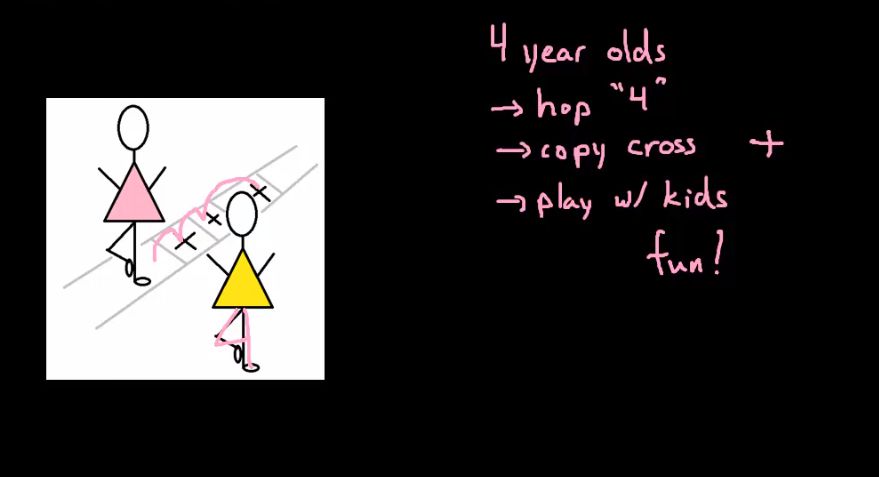 4 year olds
→ hop "4"
→ copy cross +
→ play w/ kids
fun!